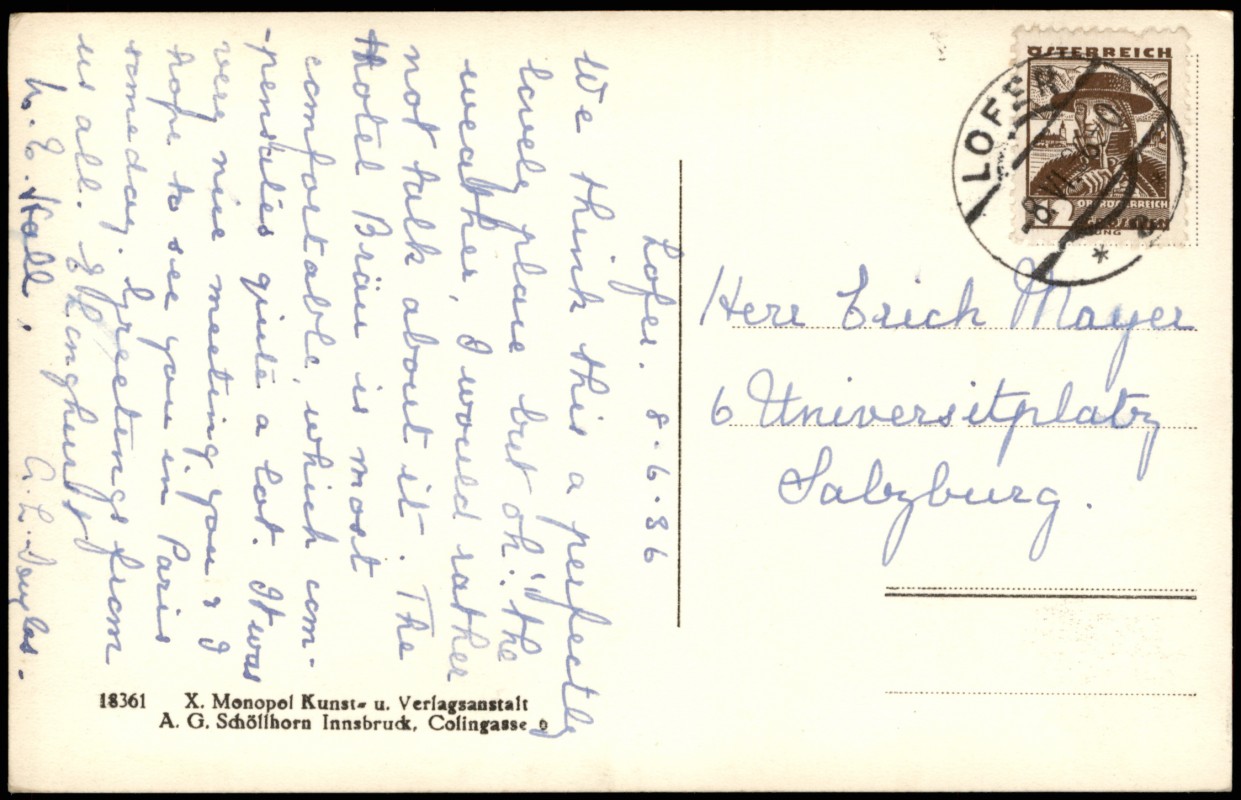 Lofer. 8.6.36
We think this a perfectly
lovely place but oh! the
weather, I would rather
not talk about it. The
Hotel Bräu is most
comfortable, which com-
-pensates quite a lot. It was
very nice meeting you & I
hope to see you in Paris
someday. Greetings from
us all. J Langhurst
Hall.
A. L. Douglas.
ÖSTERREICH
12
OBERÖSTERREICH
LOFER
Herr Erich Mayer
6 Universitplatz
Salzburg.
18361 X. Monopol Kunst- u. Verlagsanstalt
A. G. Schöllhorn Innsbruck, Colingasse 6